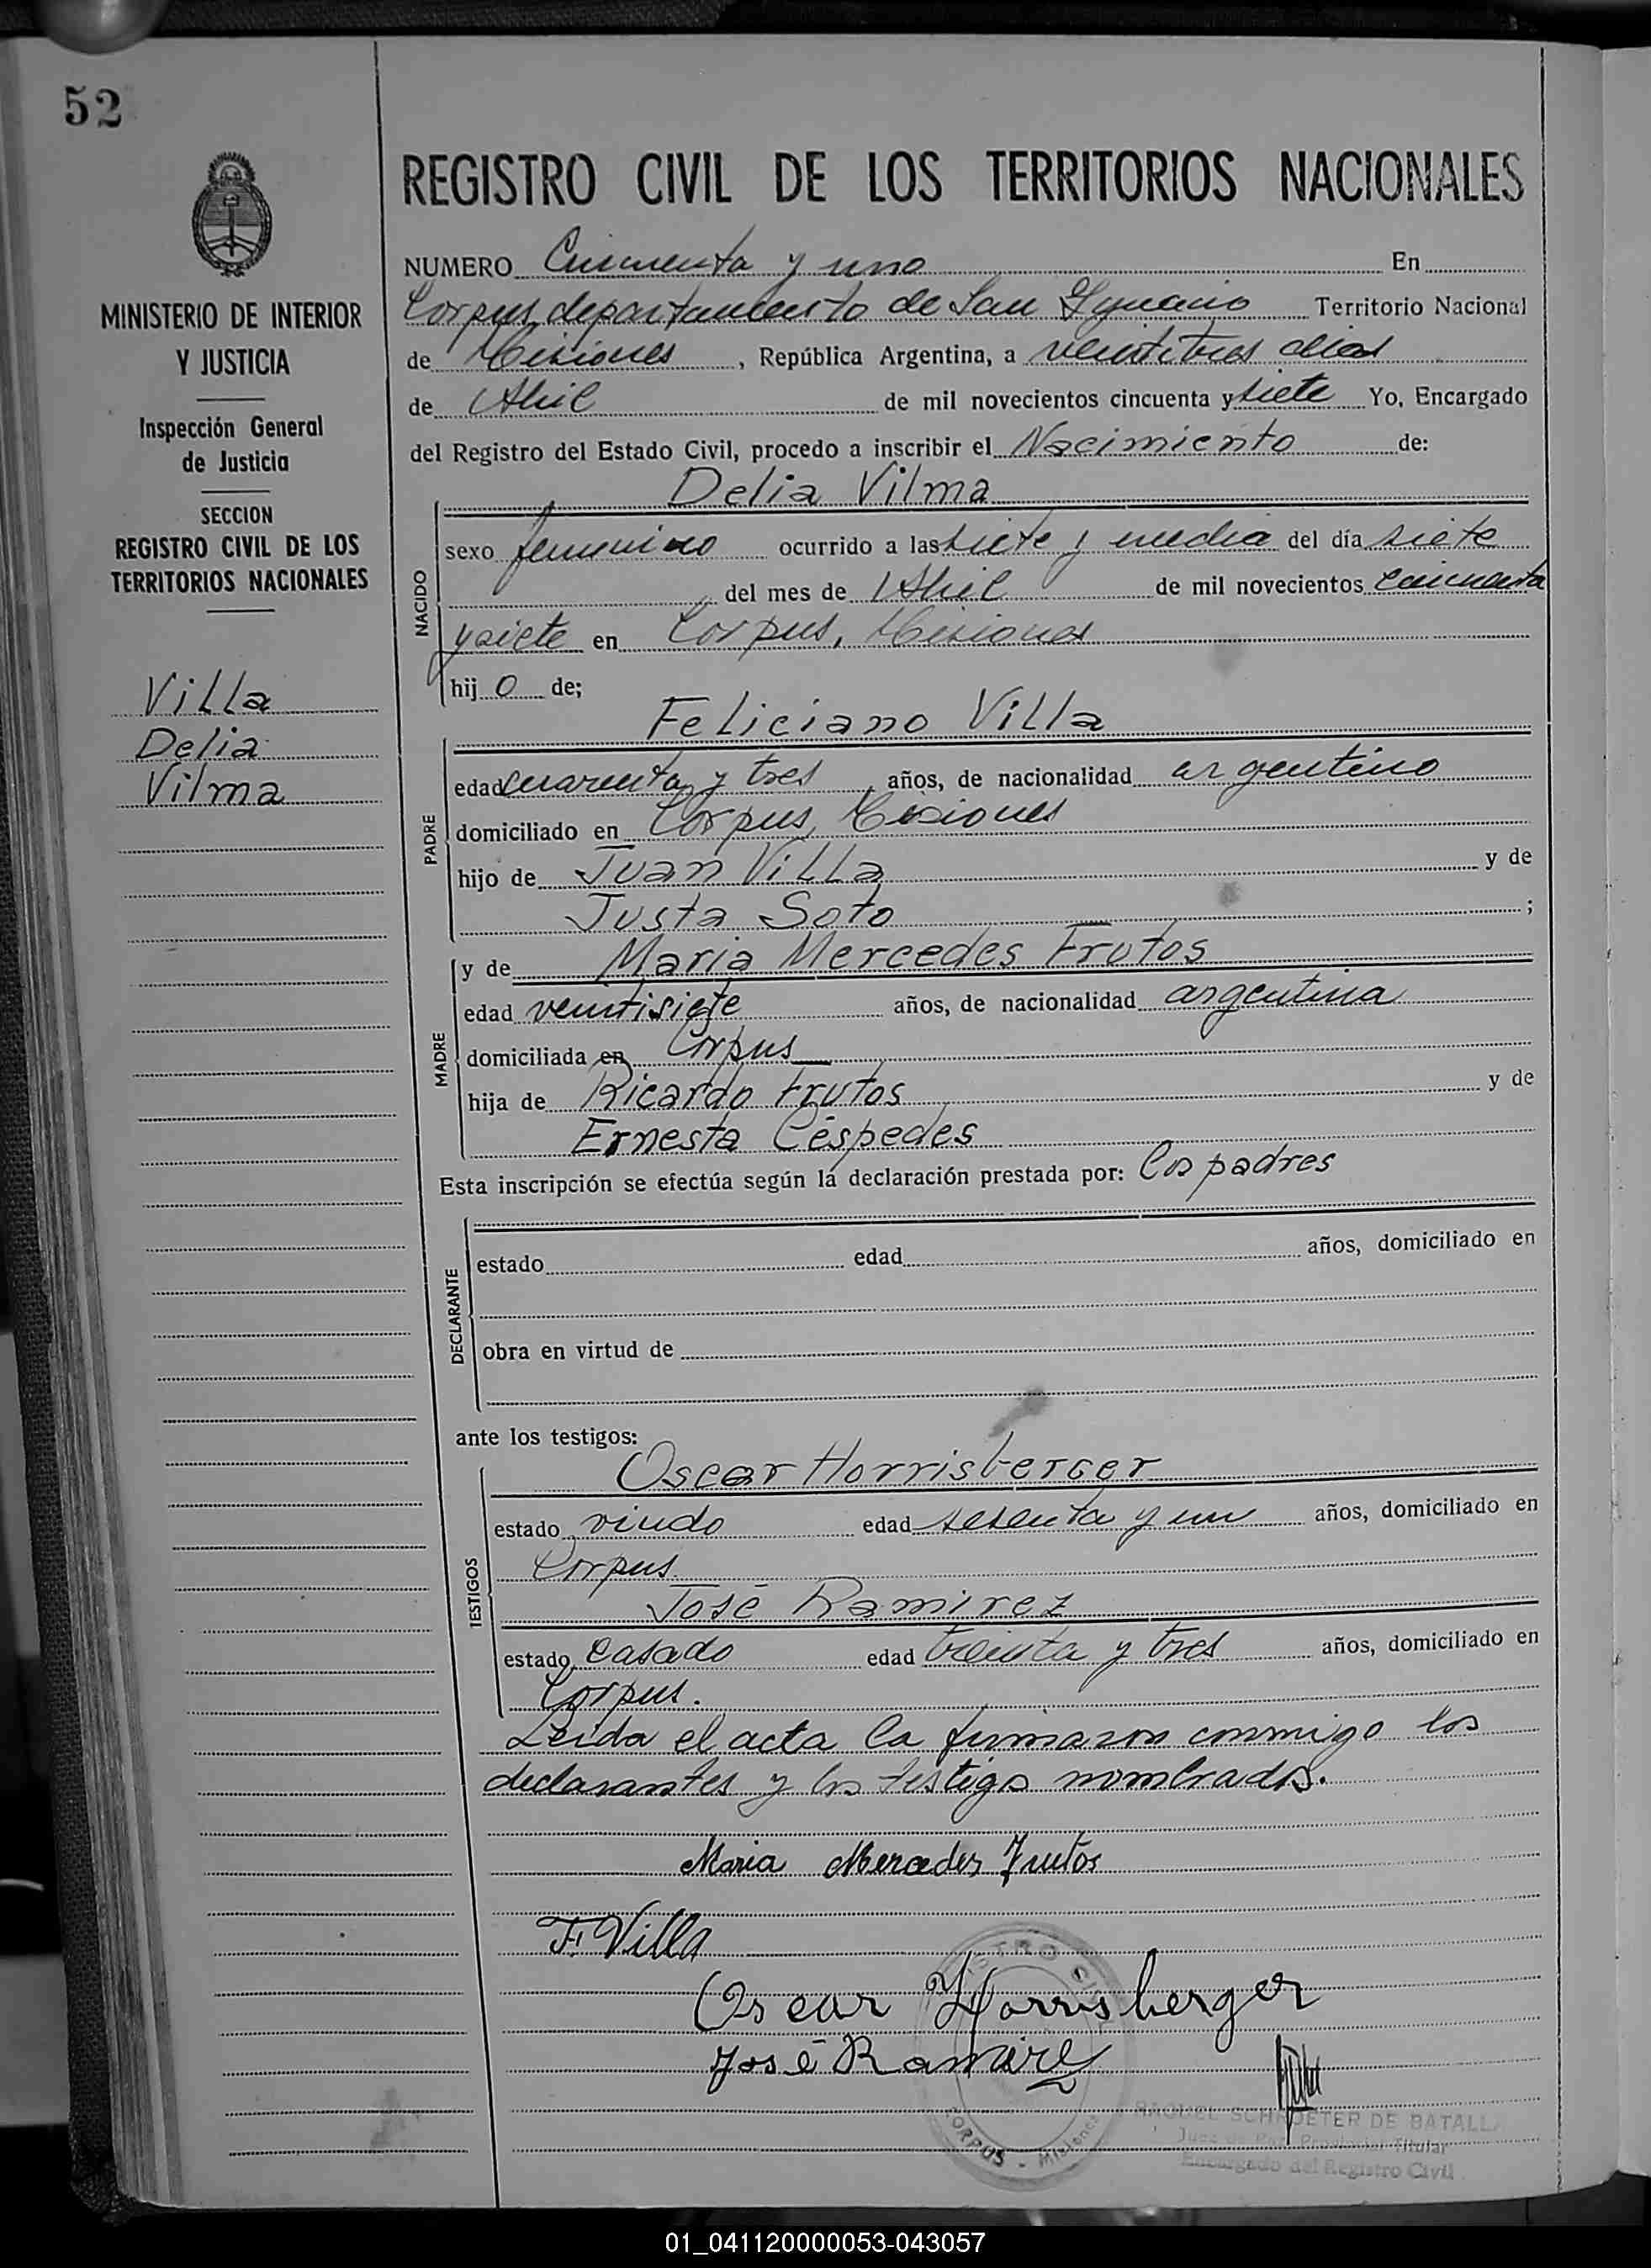 52
REGISTRO CIVIL DE LOS TERRITORIOS NACIONALES
MINISTERIO DE INTERIOR
Y JUSTICIA
Inspección General
de Justicia
SECCION
REGISTRO CIVIL DE LOS
TERRITORIOS NACIONALES
Villa
Delia
Vilma
NUMERO Cincuenta y uno En
Corpus, departamento de San Ygnacio Territorio Nacional
de Misiones, República Argentina, a veintitres dias
de Abril de mil novecientos cincuenta y siete Yo, Encargado
del Registro del Estado Civil, procedo a inscribir el Nacimiento de:
Delia Vilma
NACIDO
sexo femenino ocurrido a las siete y media del día siete
del mes de Abril de mil novecientos cincuenta
y siete en Corpus, Misiones
hij o de;
Feliciano Villa
PADRE
edad cuarenta y tres, años, de nacionalidad argentino
domiciliado en Corpus, Misiones
hijo de Juan Villa y de
Justa Soto ;
MADRE
y de Maria Mercedes Frutos
edad veintisiete años, de nacionalidad argentina
domiciliada en Corpus
hija de Ricardo Frutos y de
Ernesta Céspedes
Esta inscripción se efectúa según la declaración prestada por: los padres
DECLARANTE
estado edad años, domiciliado en
obra en virtud de
ante los testigos:
Oscar Horrisberger
TESTIGOS
estado viudo edad sesenta y un años, domiciliado en
Corpus.
José Ramirez
estado casado edad treinta y tres años, domiciliado en
Corpus.
Leida el acta la firmaron conmigo los
declarantes y los testigos nombrados.
Maria Mercedes Frutos
F. Villa
Oscar Horrisberger
José Ramirez
CORPUS - Misiones
RAQUEL SCHROETER DE BATALLA
Juez de Paz Provincial Titular
Encargado del Registro Civil
01_041120000053-043057